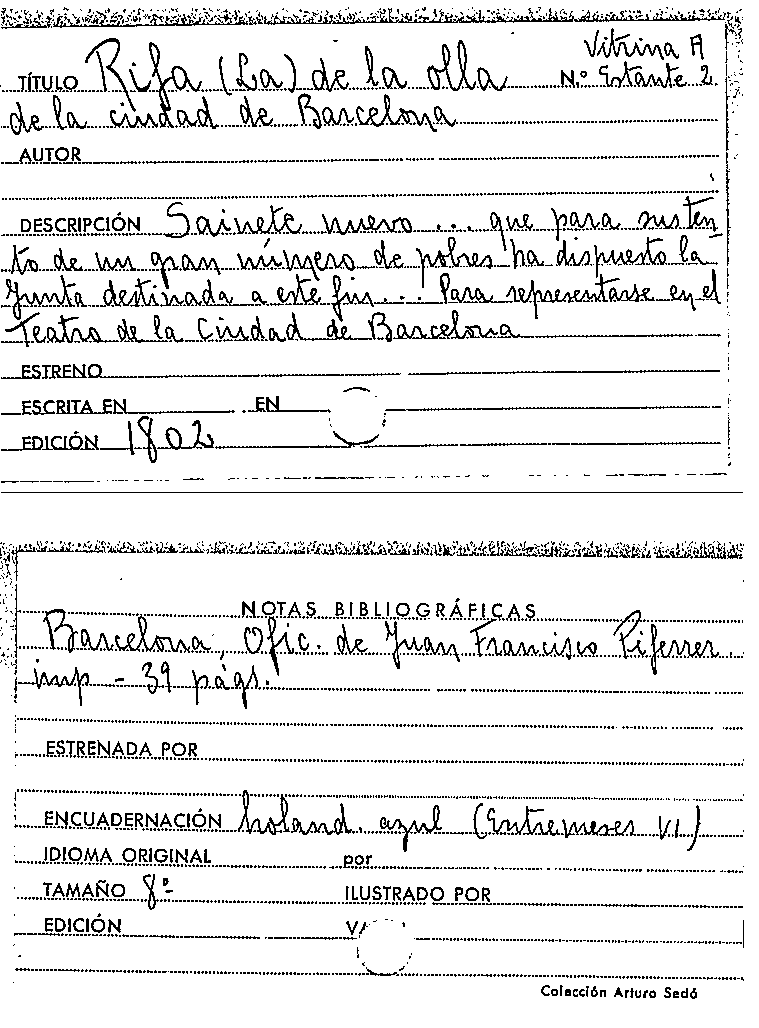 Vitrina A
TÍTULO Rifa (La) de la olla N.º Estante 2
de la ciudad de Barcelona
AUTOR
DESCRIPCIÓN Sainete nuevo ... que para susten
to de un gran número de pobres ha dispuesto la
Junta destinada a este fin... Para representarse en el
Teatro de la Ciudad de Barcelona
ESTRENO
ESCRITA EN EN
EDICIÓN 1802
NOTAS BIBLIOGRÁFICAS
Barcelona, Ofic. de Juan Francisco Piferrer.
imp - 39 págs.
ESTRENADA POR
ENCUADERNACIÓN holand. azul (Entremeses VI)
IDIOMA ORIGINAL por
TAMAÑO 8º- ILUSTRADO POR
EDICIÓN
Colección Arturo Sedó